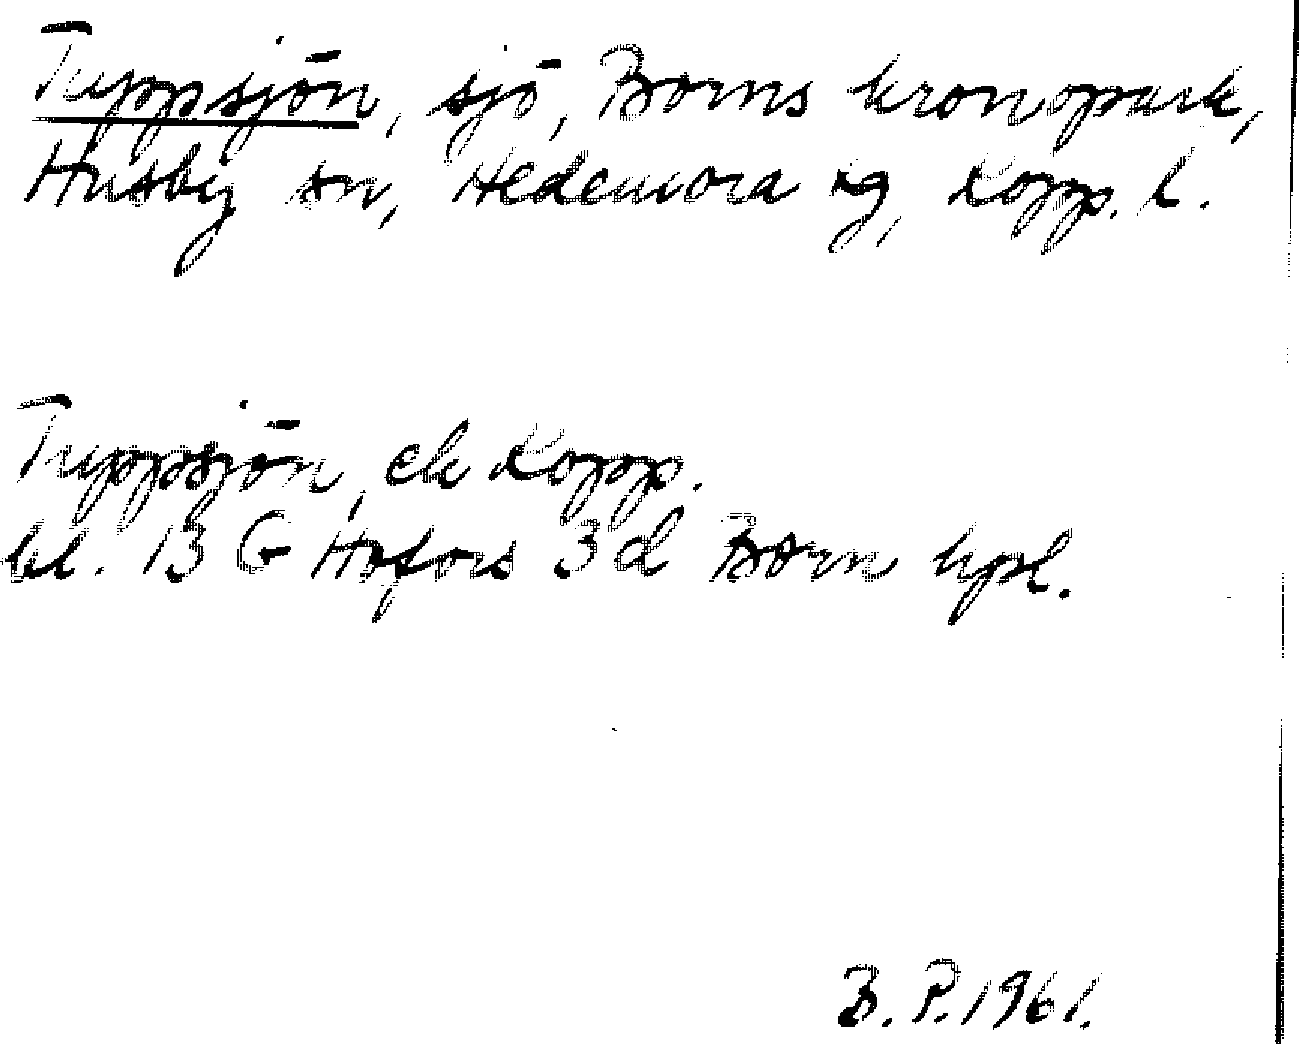 Tuppsjön, sjö, Borns kronopark,
Husby sn, Hedemora tg, Kopp. l.
Tuppsjön, ek Kopp.
bl. 13 G Hofors 3d Born hpl.
B. P. 1961.